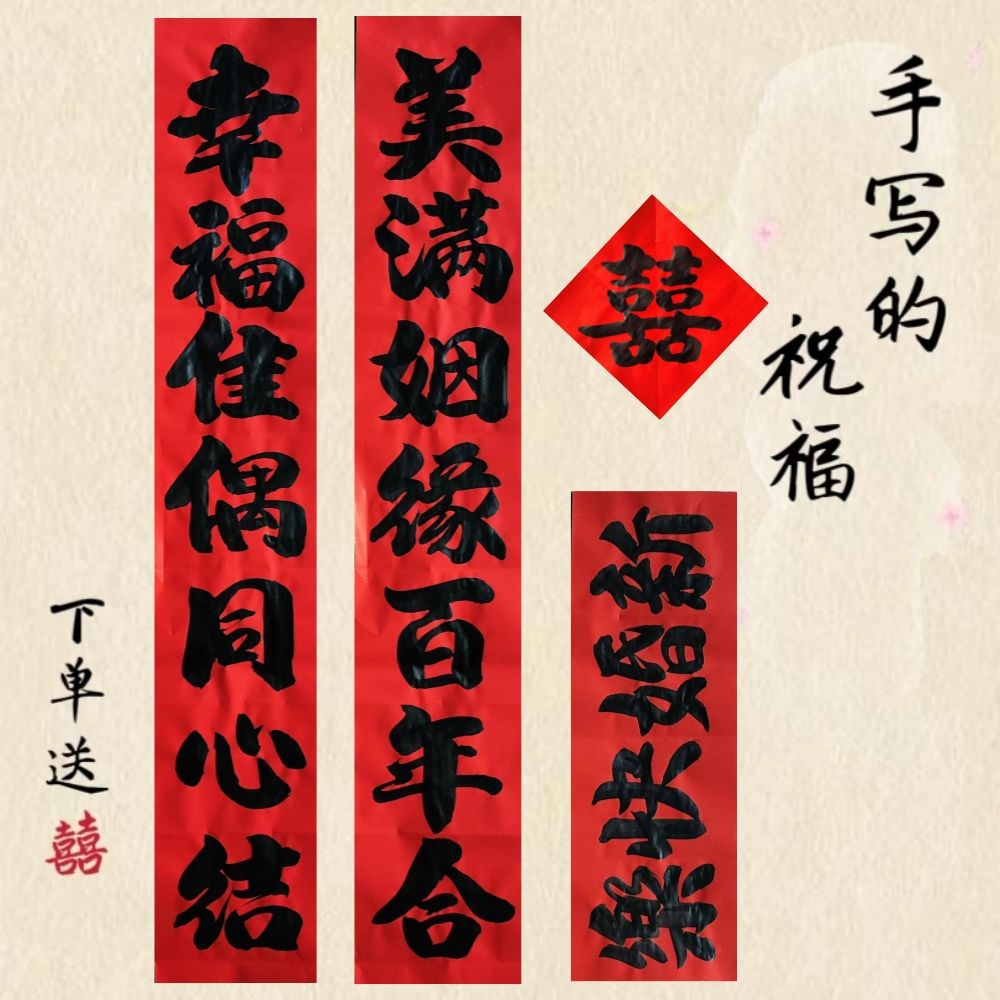 手写的
祝福
囍
新婚快樂
美满姻缘百年合
幸福佳偶同心结
下单送囍